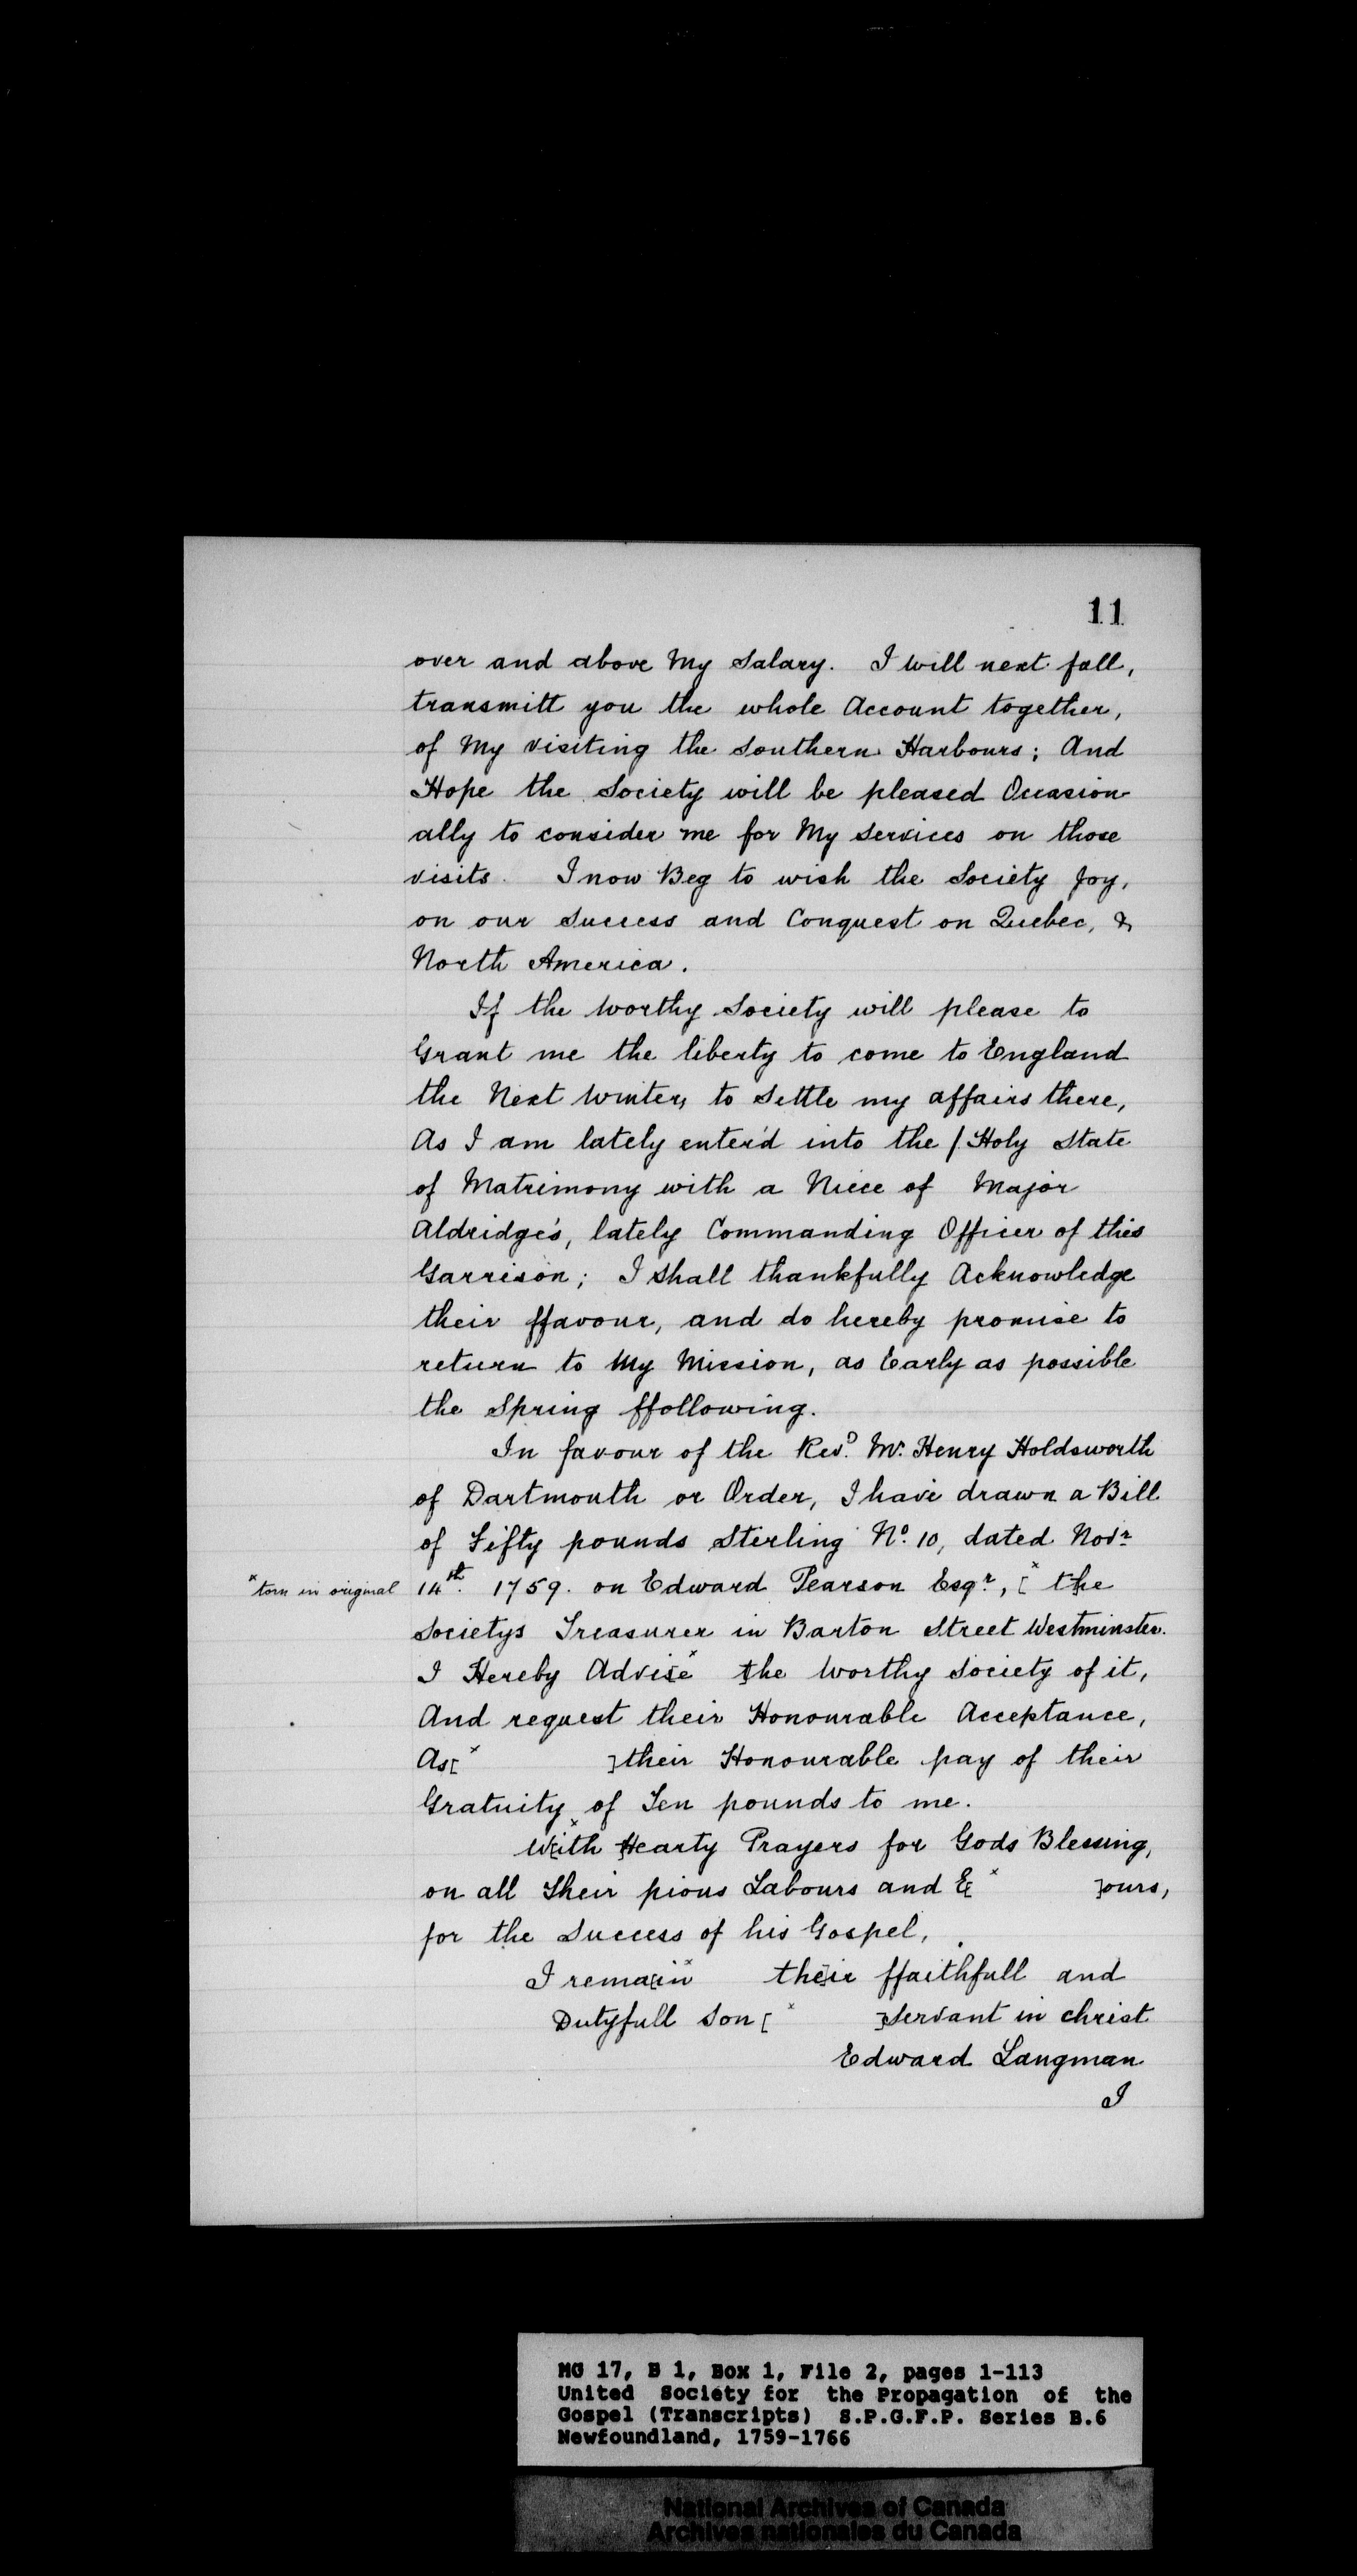 11
over and above My Salary. I will next fall,
transmitt you the whole Account together,
of My visiting the Southern Harbours; And
Hope the Society will be pleased Occasion
ally to consider me for My Services on those
visits. I now Beg to wish the Society Joy,
on our Success and Conquest on Quebec, &
North America.
If the Worthy Society will please to
Grant me the liberty to come to England
the Next Winter, to Settle my affairs there,
As I am lately enter'd into the / Holy State
of Matrimony with a Niece of Major
Aldridge's, lately Commanding Officer of this
Garrison; I shall thankfully Acknowledge
their ffavour, and do hereby promise to
return to My Mission, as Early as possible
the Spring ffollowing.
In favour of the Revd. Mr. Henry Holdsworth
of Dartmouth or Order, I have drawn a Bill
of Fifty pounds Sterling No. 10, dated Novr
*torn in original 14th. 1759. on Edward Pearson Esqr, [* th]e
Societys Treasurer in Barton Street Westminster.
I Hereby Advi[se* t]he Worthy Society of it,
And request their Honourable Acceptance,
As[* ]their Honourable pay of their
Gratuity of Ten pounds to me.
W[ith* H]earty Prayers for Gods Blessing,
on all their pious Labours and E[* ]ours,
for the Success of his Gospel,
I rema[in* the]ir ffaithfull and
Dutyfull Son [* ]Servant in christ
Edward Langman
I
MG 17, B 1, Box 1, File 2, pages 1-113
United Society for the Propagation of the
Gospel (Transcripts) S.P.G.F.P. Series B.6
Newfoundland, 1759-1766
National Archives of Canada
Archives nationales du Canada